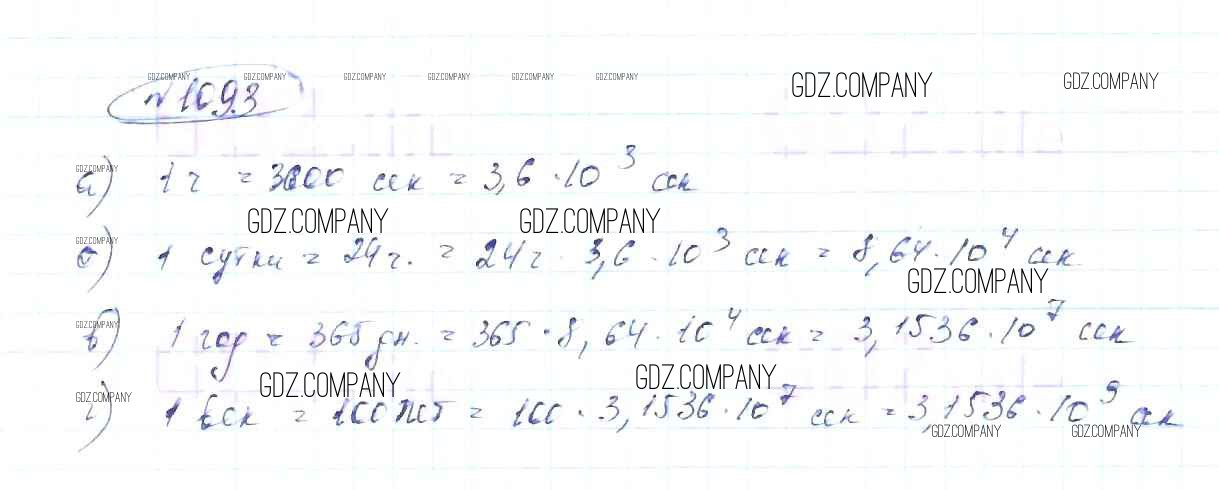 GDZ.COMPANY GDZ.COMPANY GDZ.COMPANY GDZ.COMPANY GDZ.COMPANY GDZ.COMPANY GDZ.COMPANY GDZ.COMPANY
№1093
GDZ.COMPANY
а) 1 ч = 3600 сек = 3,6 · 10³ сек
GDZ.COMPANY GDZ.COMPANY
GDZ.COMPANY
б) 1 сутки = 24 ч. = 24 ч · 3,6 · 10³ сек = 8,64 · 10⁴ сек
GDZ.COMPANY
GDZ.COMPANY
в) 1 год = 365 дн. = 365 · 8,64 · 10⁴ сек = 3,1536 · 10⁷ сек
GDZ.COMPANY GDZ.COMPANY
GDZ.COMPANY
г) 1 век = 100 лет = 100 · 3,1536 · 10⁷ сек = 3,1536 · 10⁹ сек
GDZ.COMPANY GDZ.COMPANY